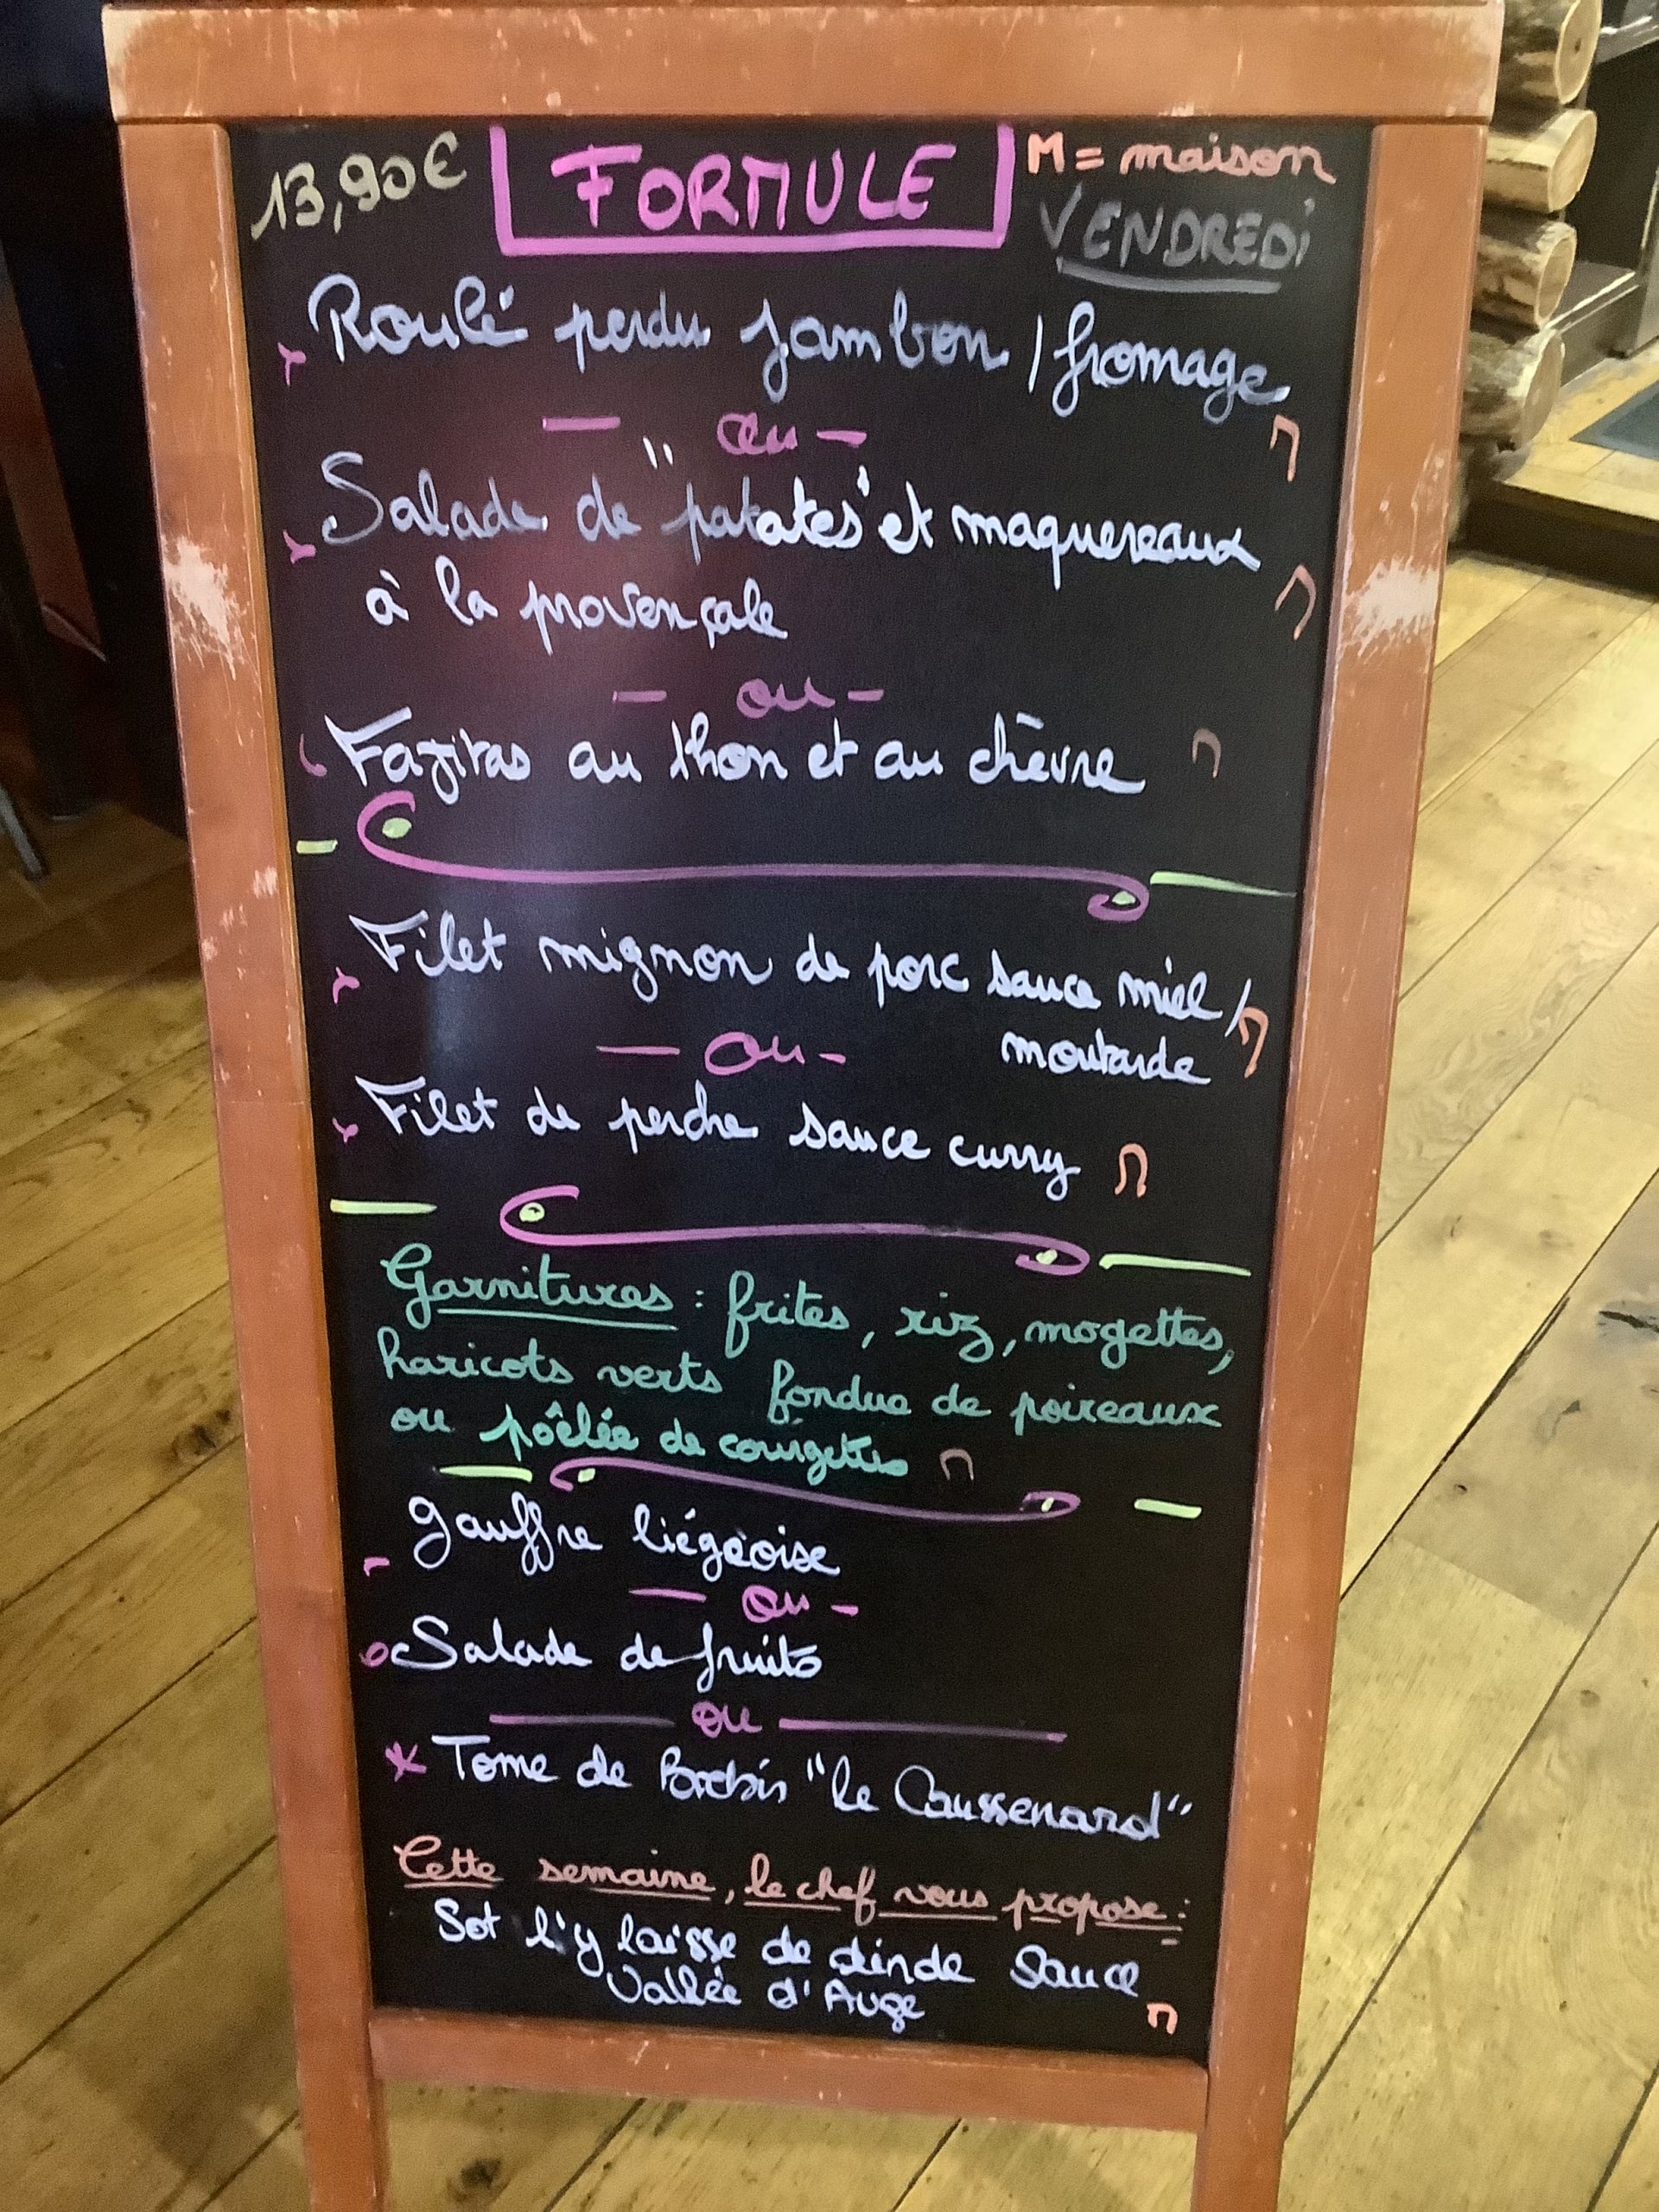 13,90€ FORMULE M = maison
VENDREDi
Roulé perdu jambon / fromage
— ou — M
Salade de "patates" et maquereaux
à la provençale M
— ou —
Fajitas au thon et au chèvre M
Filet mignon de porc sauce miel /
moutarde M
— ou —
Filet de perche sauce curry M
Garnitures : frites, riz, mogettes,
haricots verts fondue de poireaux
ou pôêlée de courgettes M
gauffre liégeoise
— ou —
Salade de fruits
— ou —
* Tome de Brebis "le Caussenard"
Cette semaine, le chef vous propose :
Sot l'y laisse de dinde Sauce
Vallée d'Auge M